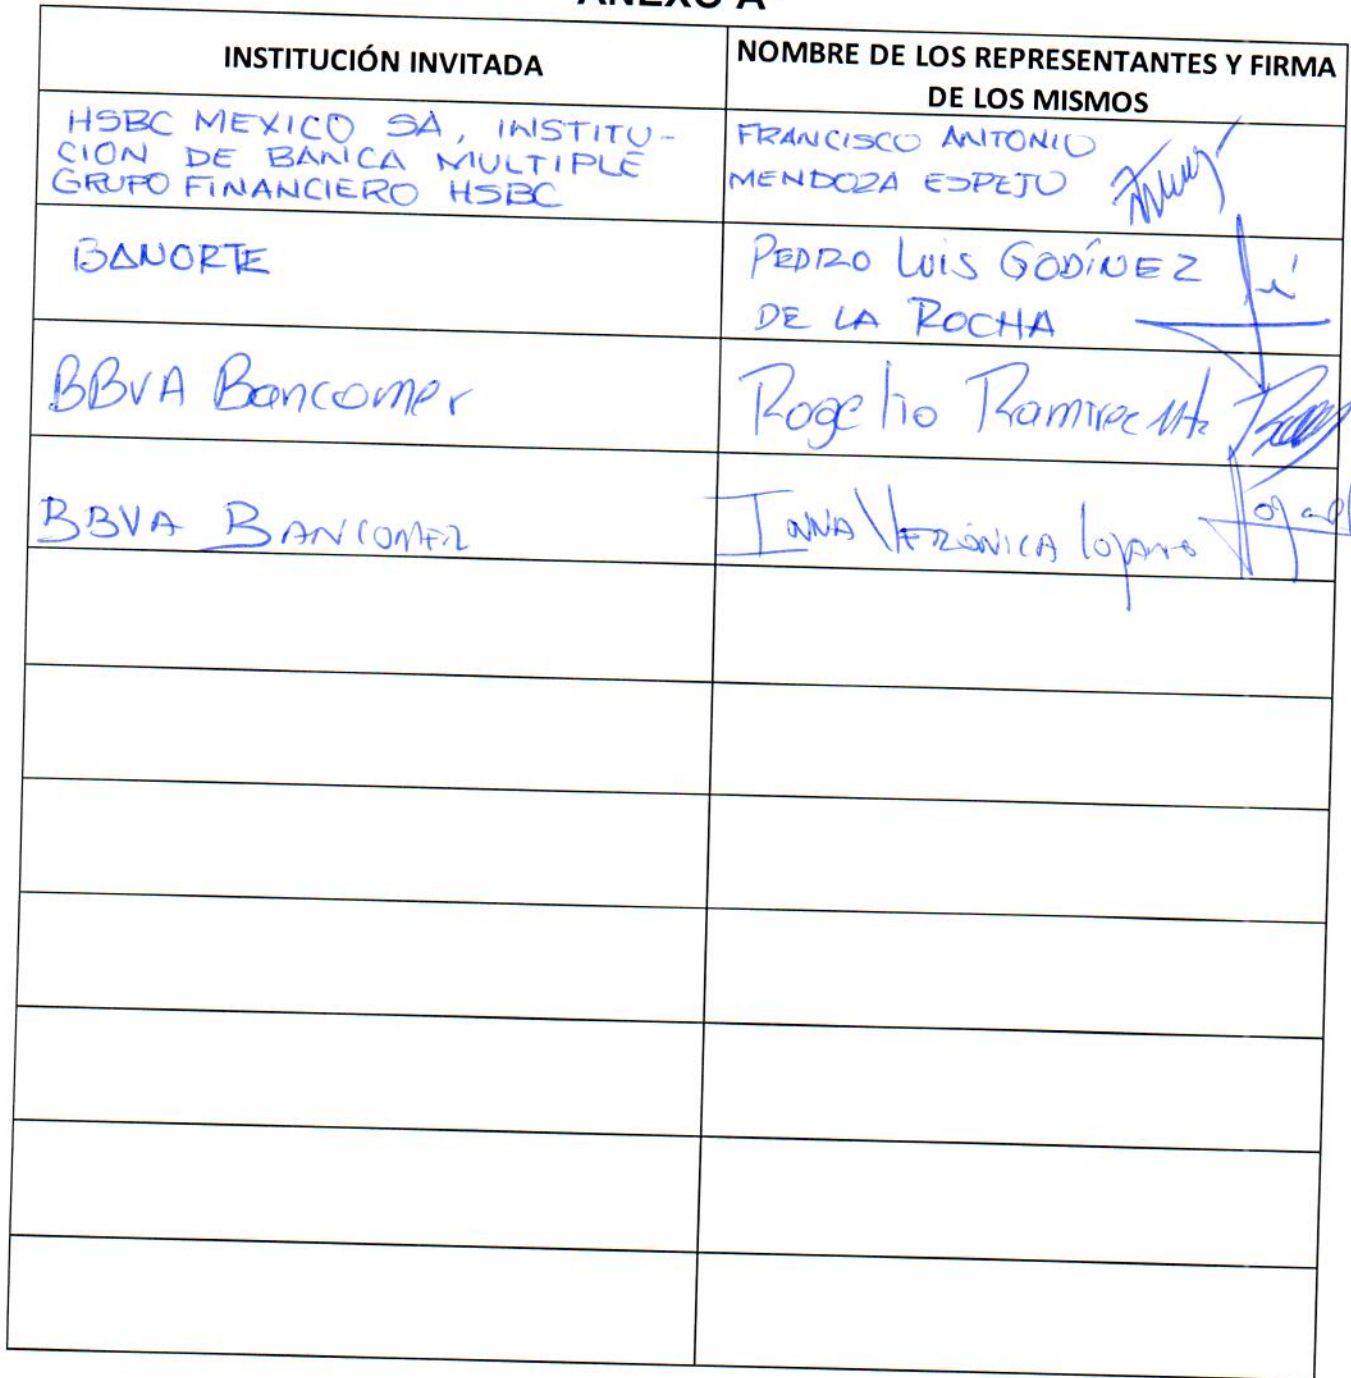 ANEXO A
INSTITUCIÓN INVITADA
NOMBRE DE LOS REPRESENTANTES Y FIRMA
DE LOS MISMOS
HSBC MEXICO SA, INSTITU-
CION DE BANCA MULTIPLE
GRUPO FINANCIERO HSBC
FRANCISCO ANTONIO
MENDOZA ESPEJO
BANORTE
PEDRO LUIS GODÍNEZ
DE LA ROCHA
BBVA Bancomer
Rogelio Ramirez
BBVA BANCOMER
VERÓNICA Lozano